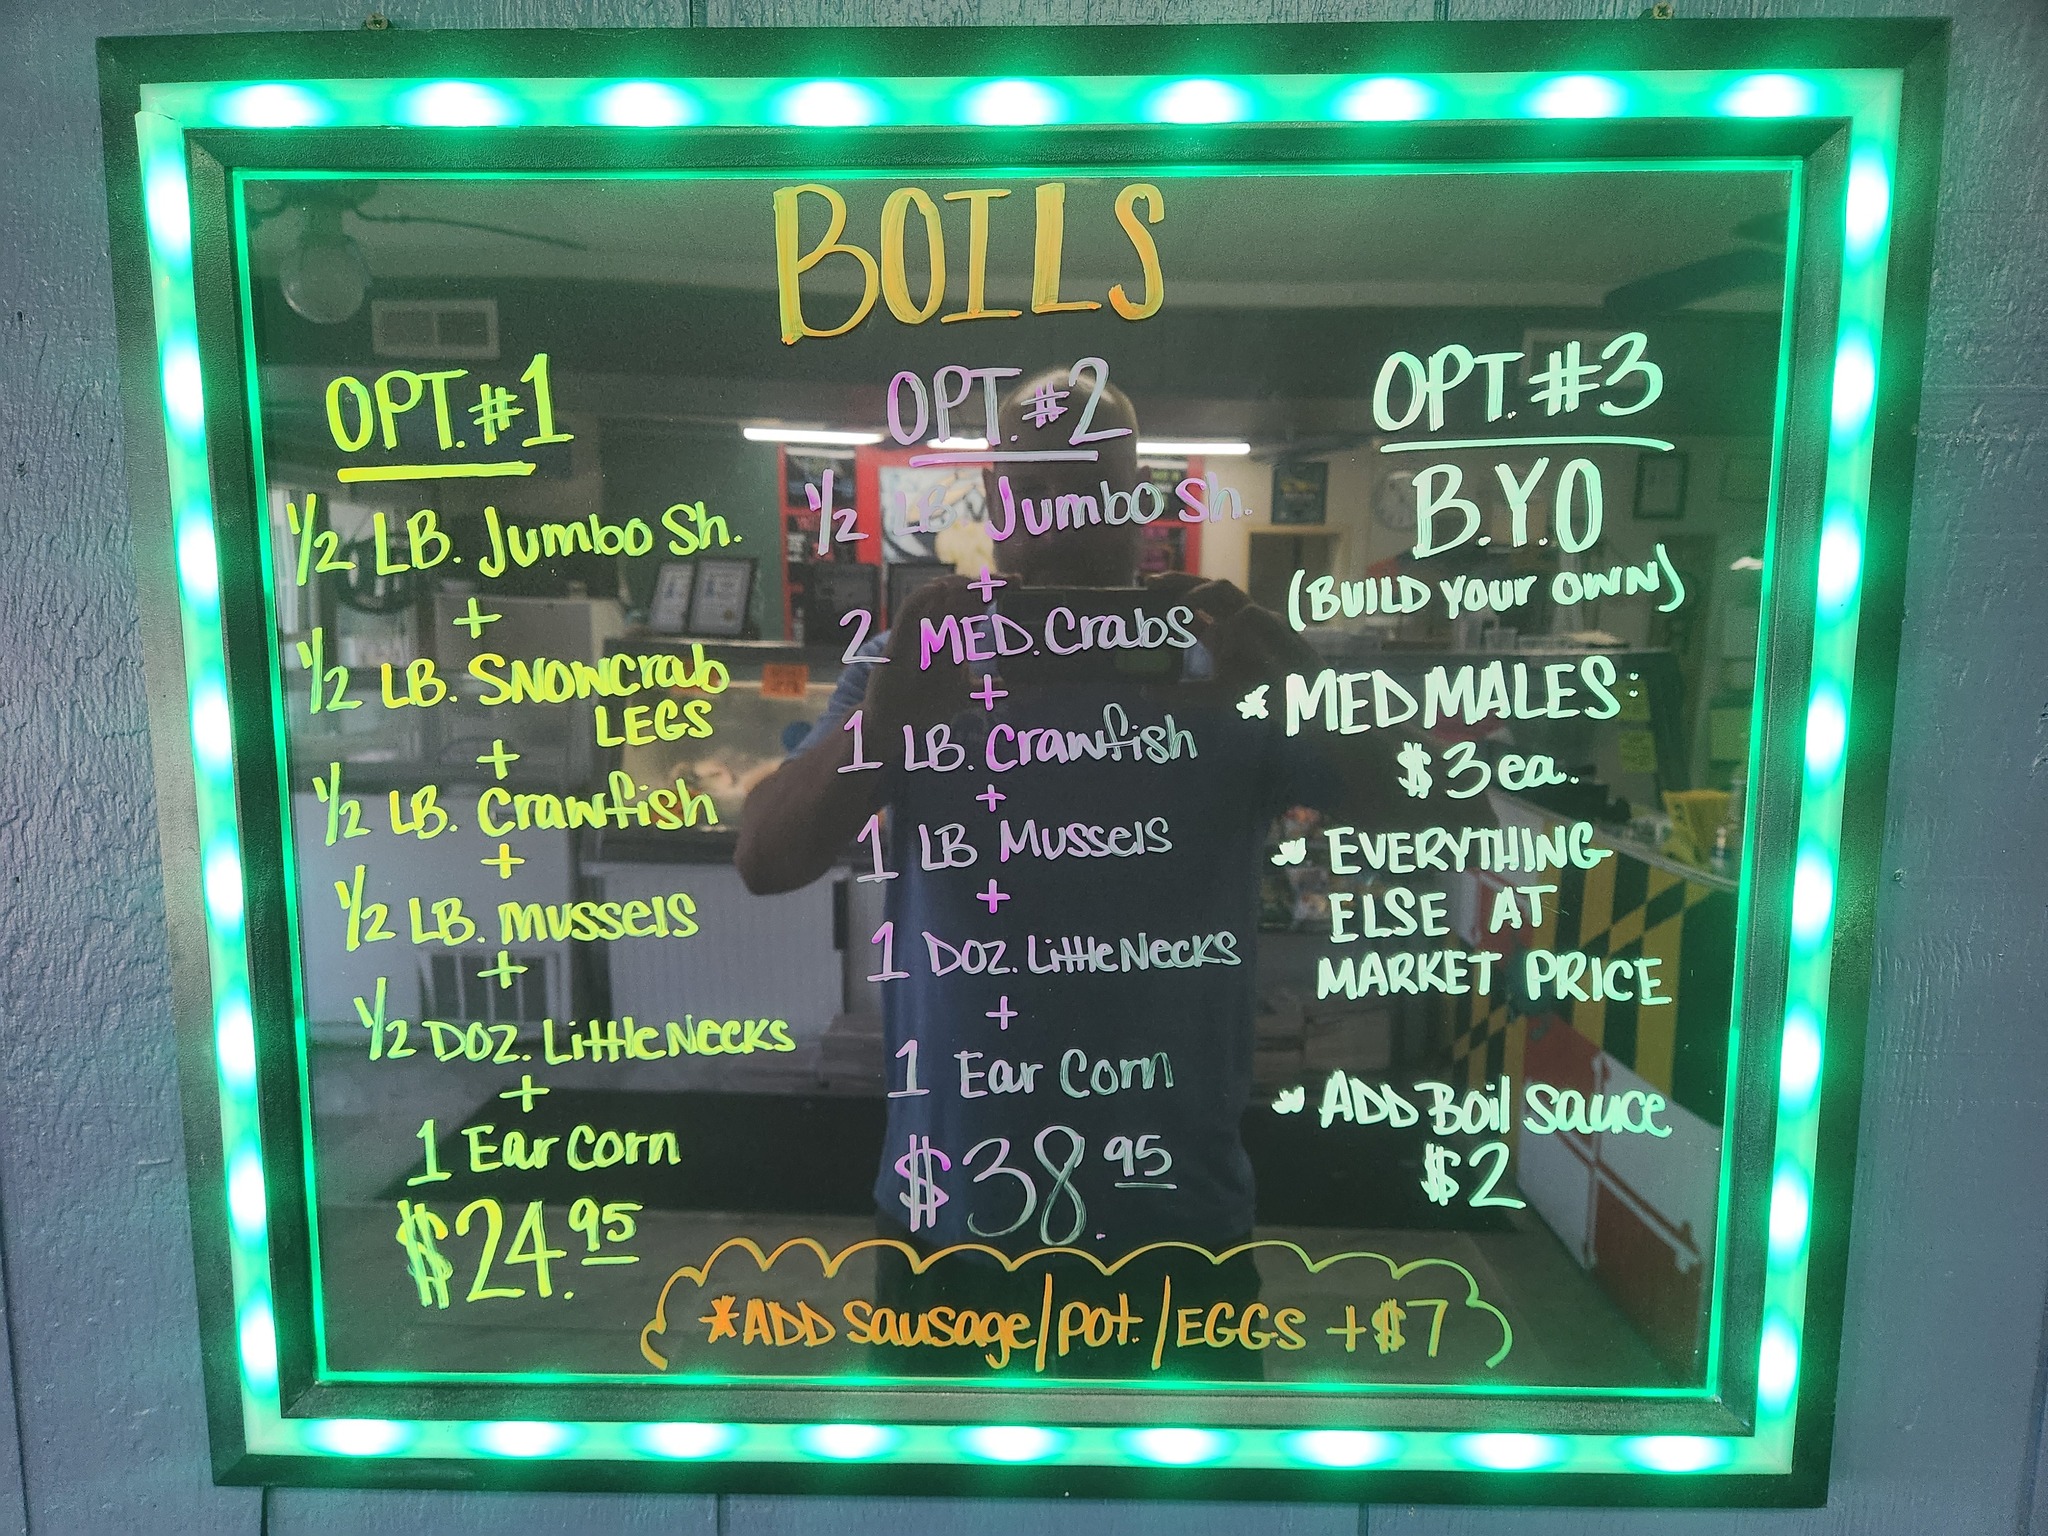 BOILS
OPT. #1
1/2 LB. Jumbo Sh.
+
1/2 LB. SNOWCrab
LEGS
+
1/2 LB. Crawfish
+
1/2 LB. Mussels
+
1/2 DOZ. LittleNecks
+
1 Ear Corn
$24.95
OPT. #2
1/2 LB. Jumbo Sh.
+
2 MED. Crabs
+
1 LB. Crawfish
+
1 LB Mussels
+
1 DOZ. LittleNecks
+
1 Ear Corn
$38.95
OPT. #3
B.Y.O
(BUILD Your OWN)
* MED MALES:
$3 ea.
* EVERYTHING
ELSE AT
MARKET PRICE
* ADD Boil Sauce
$2
*ADD Sausage/Pot./EGGS +$7